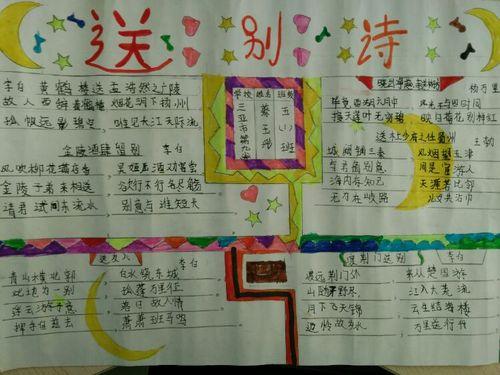 送别诗
李白 黄鹤楼送孟浩然之广陵
故人西辞黄鹤楼 烟花三月下扬州
孤帆远影碧空 唯见长江天际流
金陵酒肆留别 李白
风吹柳花满店香 吴姬压酒劝客尝
金陵子弟来相送 欲行不行各尽觞
请君试问东流水 别意与谁短天
学校 姓名 班级
三亚市第九
五(1)班
杨万里
毕竟西湖六月中 风光不与四时同
接天莲叶无穷碧 映日荷花别样红
送杜少府之任蜀州 王勃
城阙辅三秦 风烟望五津
与君离别意 同是宦游人
海内存知己 天涯若比邻
无为在歧路 儿女共沾巾
送友人 李白
青山横北郭 白水绕东城
此地为一别 孤蓬万里征
浮云游子意 落日故人情
挥手自兹去 萧萧班马鸣
渡荆门送别 李白
渡远荆门外 来从楚国游
山随平野尽 江入大荒流
月下飞天镜 云生结海楼
仍怜故乡水 万里送行舟